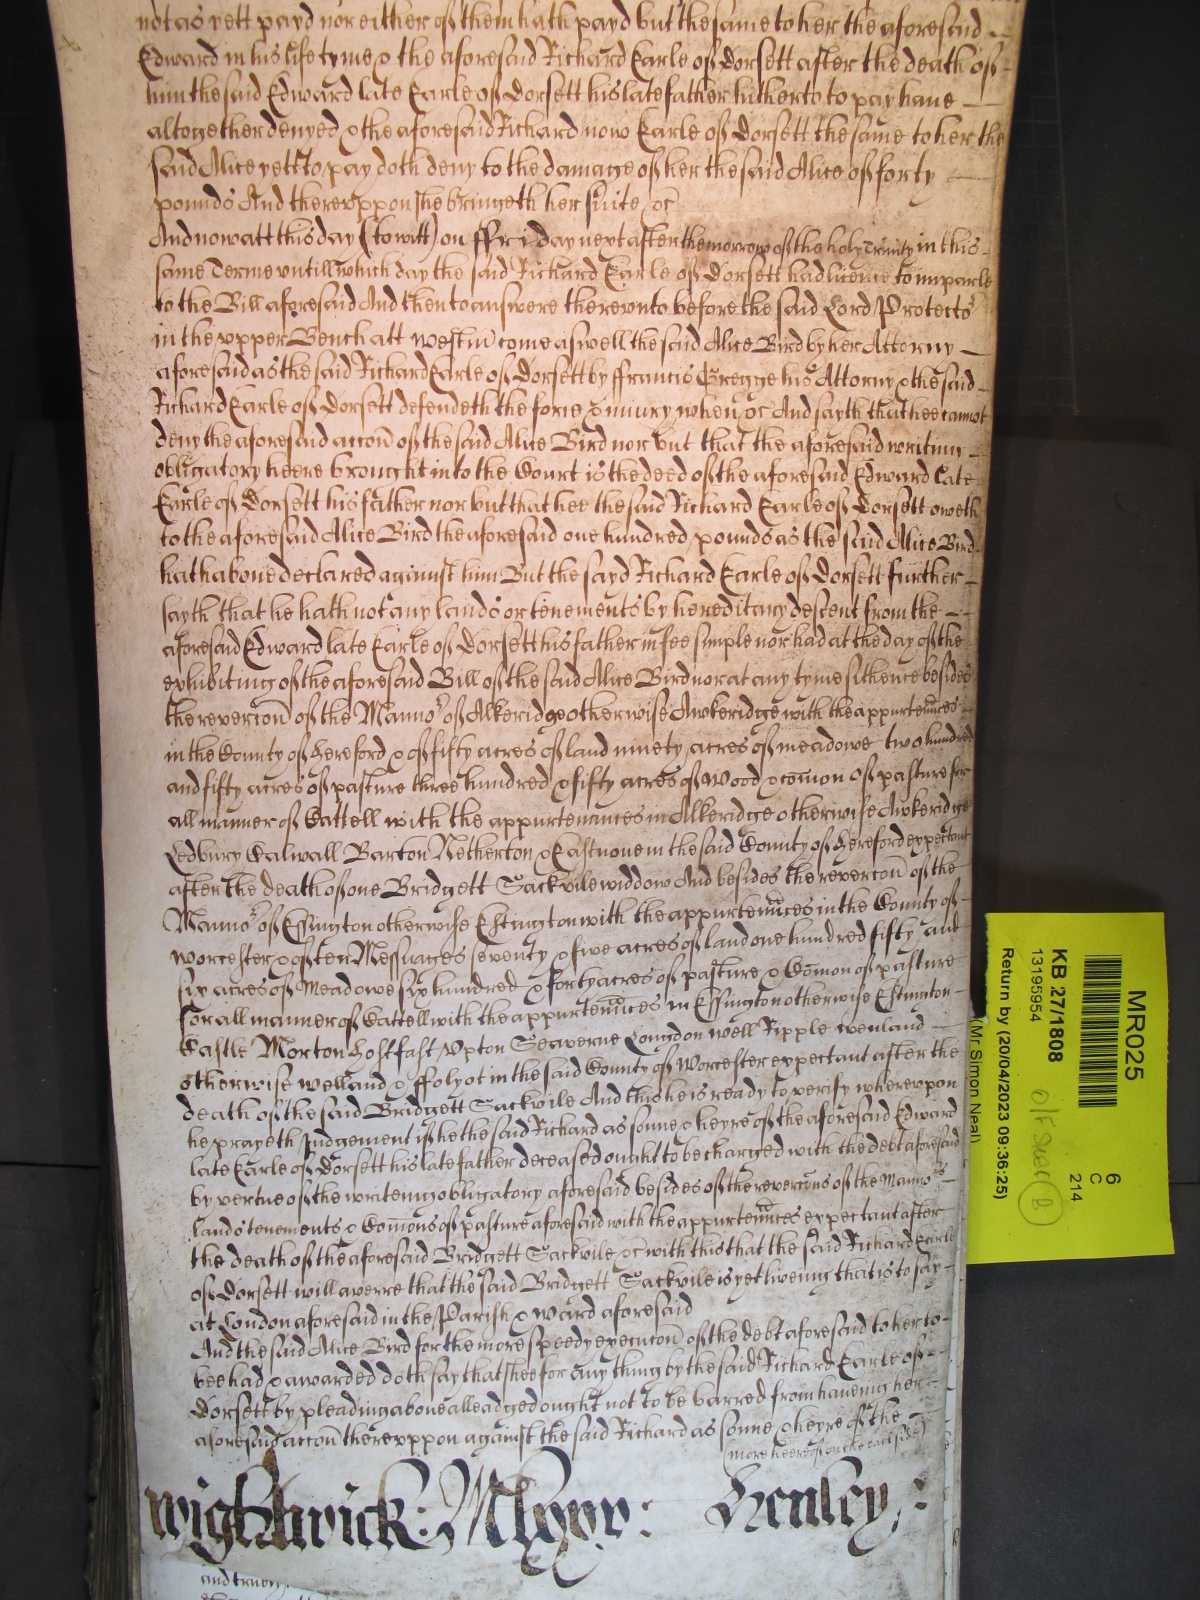 not as yett payd nor either of them hath payd but the same to her the aforesaid
Edward in his life tyme & the aforesaid Richard Earle of Dorsett after the death of
him the said Edward late Earle of Dorsett his late father hitherto to pay have
altogether denyed & the aforesaid Richard now Earle of Dorsett the same to her the
said Alice yett to pay doth deny to the damage of her the said Alice of forty
pounds And thereuppon she bringeth her suite &c
And now att this day (to witt) on ffriday next after the morrow of the holy Trinity in this
same Terme untill which day the said Richard Earle of Dorsett had licence to imparle
to the Bill aforesaid And then to answere thereunto before the said Lord Protector
in the upper Bench att Westm come aswell the said Alice Bird by her Attorny
aforesaid as the said Richard Earle of Dorsett by ffrancis Gregge his Attorny & the said
Richard Earle of Dorsett defendeth the force & iniury when &c And sayth that hee cannot
deny the aforesaid accon of the said Alice Bird nor but that the aforesaid writing
obligatory heere brought into the Court is the deed of the aforesaid Edward late
Earle of Dorsett his father nor but that hee the said Richard Earle of Dorsett oweth
to the aforesaid Alice Bird the aforesaid one hundred pounds as the said Alice Bird
hath above declared against him But the sayd Richard Earle of Dorsett further
sayth that he hath not any lands or tenements by hereditary descent from the
aforesaid Edward late Earle of Dorsett his father in fee simple nor had at the day of the
exhibiting of the aforesaid Bill of the said Alice Bird nor at any tyme sithence besides
the revercon of the Manno.r of Alkeridge otherwise Awkeridge with the appurtennces
in the County of Hereford & of fifty acres of land ninety acres of meadowe two hundred
and fifty acres of pasture three hundred & fifty acres of wood & comon of pasture for
all manner of Cattell with the appurtenances in Alkeridge otherwise Awkeridge
Ledbury Calwall Barton Netherton & Eastnone in the said County of Hereford expectant
after the death of one Bridgett Sackvile widdow And besides the revercon of the
Manno.r of Essington otherwise Estington with the appurtennces in the County of
Worcester & of ten Messuages seventy & five acres of land one hundred fifty and
six acres of Meadowe six hundred & forty acres of pasture & Comon of pasture
for all manner of Cattell with the appurtennces in Essington otherwise Estington
Castle Morton Holffast Upton Seaverne Longdon Well Ripple wenland
otherwise welland & ffolyot in the said County of Worcester expectant after the
death of the said Bridgett Sackvile And this he is ready to verify whereupon
he prayeth Judgement if he the said Richard as sonne & heyre of the aforesaid Edward
late Earle of Dorsett his late father deceased ought to be charged with the debt aforesaid
by vertue of the writeing obligatory aforesaid besides of the revercons of the Manno.rs
lands tenements & Comons of pasture aforesaid with the appurtennces expectant after
the death of the aforesaid Bridgett Sackvile &c with this that the said Richard Earle
of Dorsett will averre that the said Bridgett Sackvile is yet liveing that is to say
at London aforesaid in the Parish & Ward aforesaid
And the said Alice Bird for the more speedy execucon of the debt aforesaid to her to
bee had & awarded doth say that shee for any thing by the said Richard Earle of
Dorsett by pleading above alleadged ought not to be barred from haveing her
aforesaid accon thereuppon against the said Richard as sonne & heyre of the
(more heereof on the other side)
Wightwick: Mlxxv: Henley:
and truely
MR025
KB 27/1808
13195954
6
C
214
Return by (20/04/2023 09:36:25)
(Mr Simon Neal)